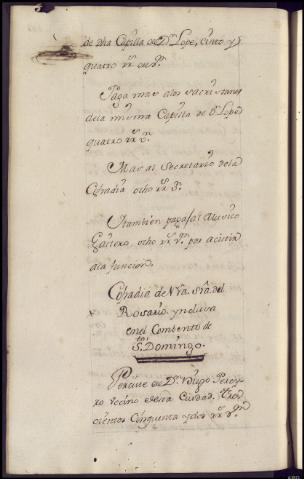 de dha Capilla de Dn. Lope, cinco y
quatro rr. de vn.
Paga mas alos sacristanes
dela misma Capilla de Dn. Lope
quatro rr. vn.
Mas al Secretario dela
Cofradia ocho rr. vn.
Y tambien paga al Musico
Gaitero, ocho rr. vn. por asistir
ala funcion.
Cofradia de Nra. Sra. del
Rosario. ynclusa
enel Combento de
Sto. Domingo.
Percive de Dn. Diego
ro vecino desta Ciudad, tres
cientos Cinquenta y dos rr. vn.